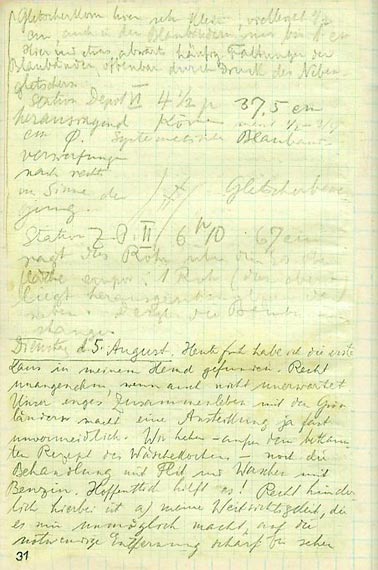 Gletscherkorn hier sehr klein, vielleicht 1/2
cm auch in den Blaubändern, nur bis 1 cm
Hier und etwas abwärts häufig Faltungen der
Blaubänder, offenbar durch Druck des Neben-
gletschers.
Station Depot VI 4 1/2 p 37,5 cm
herausragend Körner 1/2 -
cm Ø. Systematische Blauband-
verwerfungen
nach rechts
im Sinne der Gletscherbewe
gung.
Station Z. P. II 6 10 67 cm
ragt das Rohr über die
fläche empor. 1 Rohr (das obere)
liegt
neben.
stange.
Dienstag d. 5. August. Heute früh habe ich die erste
Laus in meinem Hemd gefunden. Recht
unangenehm, wenn auch nicht unerwartet
Unser enges Zusammenleben mit den Grön-
ländern macht eine Ansteckung ja fast
unvermeidlich. Wir haben - ausser dem bekann-
ten Rezept des Wäschekochens - noch die
Behandlung mit Flit und Waschen mit
Benzin. Hoffentlich hilft es! Recht hinder
lich hierbei ist a) meine Weitsichtigkeit, die
es mir unmöglich macht, auf die
notwendige Entfernung scharf zu sehen
31